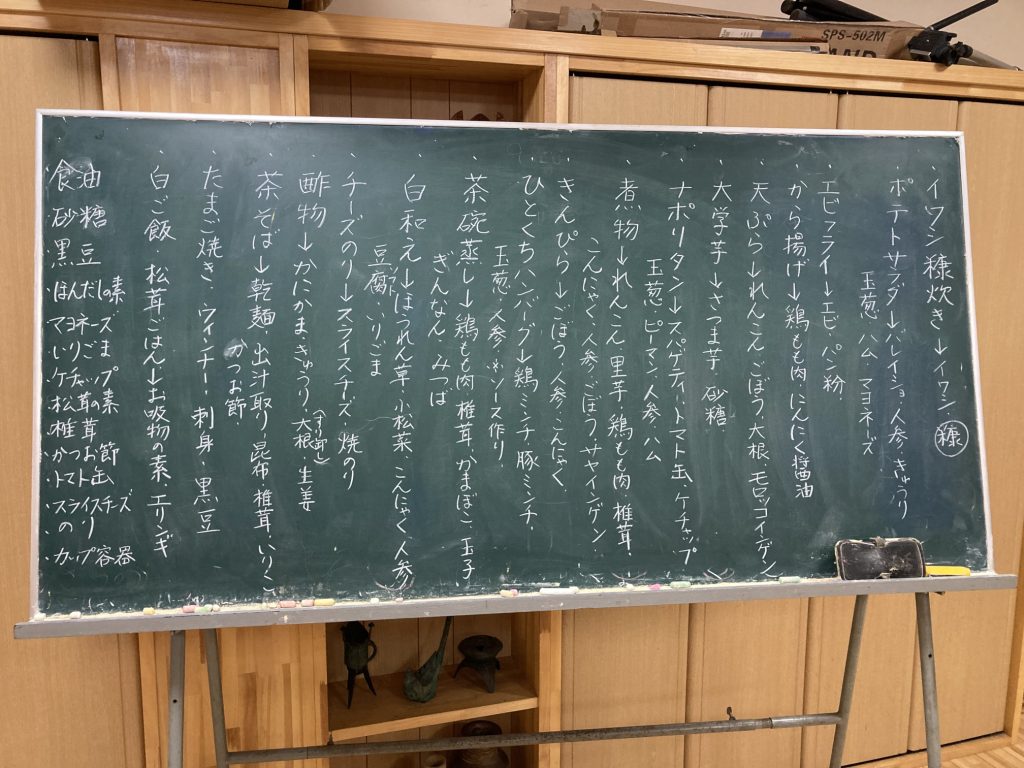 ・イワシ糠炊き→イワシ ㊙糠
・ポテトサラダ→バレイショ・人参・きゅうり
玉葱・ハム マヨネーズ
・エビフライ→エビ パン粉
・から揚げ→鶏もも肉・にんにく醤油
・天ぷら→れんこん・ごぼう・大根 モロッコインゲン
・大学芋→さつま芋 砂糖
・ナポリタン→スパゲティートマト缶 ケチャップ
玉葱・ピーマン・人参・ハム
・煮物→れんこん 里芋・鶏もも肉 椎茸・
こんにゃく・人参・ごぼう・サヤインゲン
・きんぴら→ごぼう・人参・こんにゃく
・ひとくちハンバーグ→鶏ミンチ・豚ミンチ・
玉葱・人参・※ソース作り
・茶碗蒸し→鶏もも肉 椎茸・かまぼこ・玉子・
ぎんなん・みつば
・白和え→ほうれん草・小松菜・こんにゃく・人参
豆腐・いりごま
・チーズのり→スライスチーズ・焼のり
・酢物→かにかま・きゅうり・大根 生姜
・茶そば→乾麺 出汁取り 昆布 椎茸・いりこ
かつお節・
・たまご焼き・ウィンナー 刺身・黒豆
・白ご飯・松茸ごはん→お吸物の素 エリンギ
食油
砂糖
黒豆
・ほんだしの素
・マヨネーズ
・いりごま
・ケチャップ
・松茸の素
・椎茸
・かつお節
・トマト缶
・スライスチーズ
・のり
・カップ容器
SPS-502M